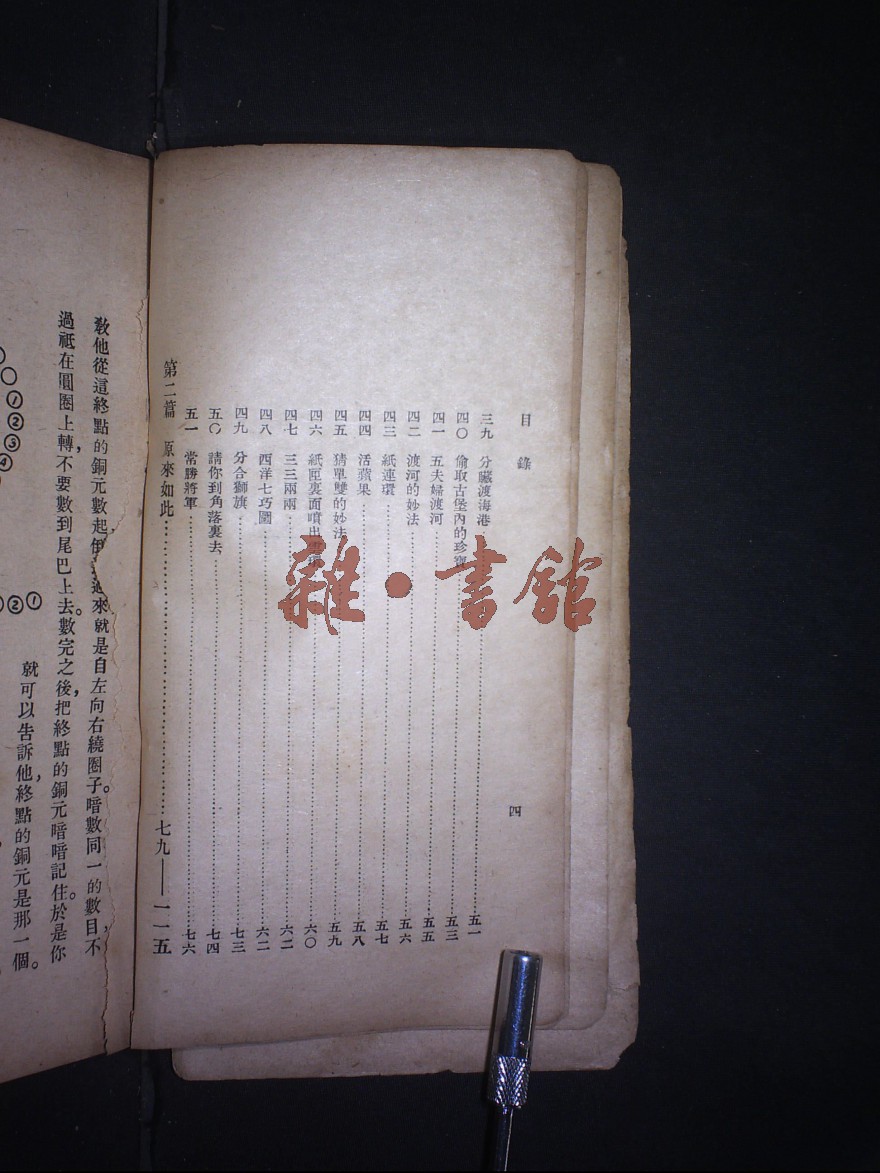 目錄
四
三九 分贓渡海港 五一
四〇 偷取古堡內的珍寶 五三
四一 五夫婦渡河 五五
四二 渡河的妙法 五六
四三 紙連環 五七
四四 活蘋果 五八
四五 猜單雙的妙法 五九
四六 紙匣裏面噴出 六〇
四七 三三兩兩 六二
四八 西洋七巧圖 六二
四九 分合獅旗 七三
五〇 請你到角落裏去 七四
五一 常勝將軍 七六
第二篇 原來如此 七九——一一五
教他從這終點的銅元數起,來就是自左向右繞圈子。暗數同一的數目,不
過祇在圓圈上轉,不要數到尾巴上去。數完之後,把終點的銅元暗暗記住。於是你
就可以告訴他,終點的銅元是那一個。
①
②
③
④
②①
雜·書館